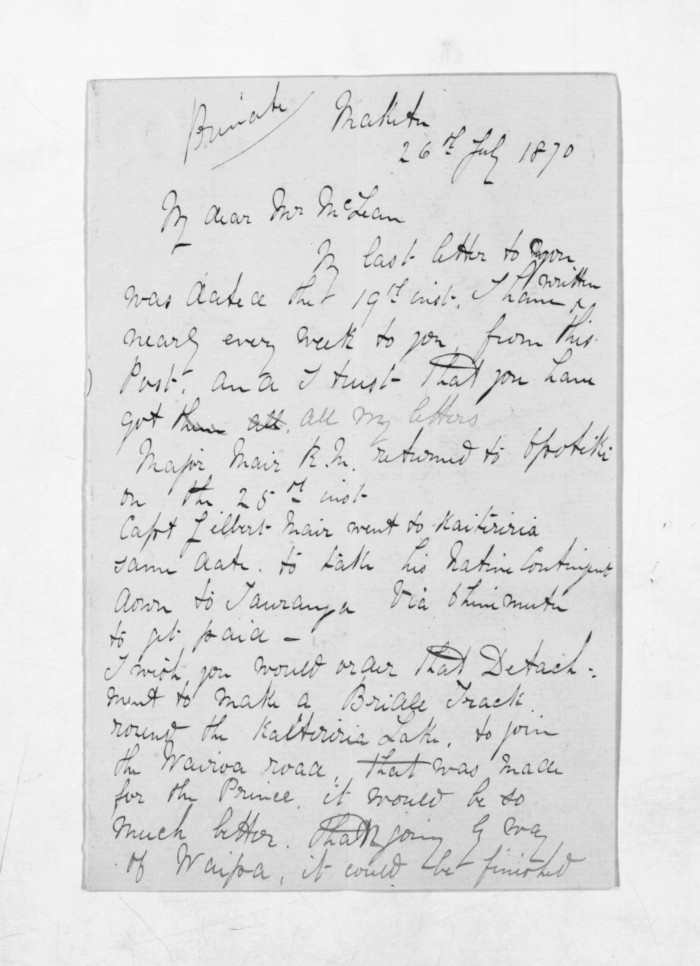 Private
Maketu
26th July 1870
My dear Mr McLean
My last letter to you
was dated the 19th inst. I have written
nearly every week to you, from this
Post. and I trust that you have
got them all. all my letters
Major Mair R.M. returned to Opotiki
on the 25th inst
Capt Gilbert Mair went to Kaiteriria
same date. to take his Native Contingent
down to Tauranga Via Ohinimutu
to get paid —
I wish you would order that Detach-
ment to make a Bridle Track
round the Kaiteriria Lake, to join
the Wairoa road, that was made
for the Prince, it would be so
much better. than going by way
of Waipa, it could be finished